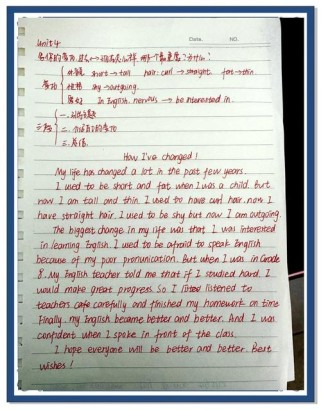 Date. NO.
Unit 4
外貌 short → tall hair: curl → straight. fat → thin.
变化 性格 shy → outgoing.
喜好 In English. nervous → be interested in.
一.
二.
三.
How I've changed!
My life has changed a lot in the past few years.
I used to be short and fat when I was a child. But
now I am tall and thin. I used to have curl hair. now I
have straight hair. I used to be shy but now I am outgoing.
The biggest change in my life was that I was interested
in learning English. I used to be afraid to speak English
because of my poor pronunication. But when I was in Grade
8. My English teacher told me that if I studied hard. I
would make great progress. So I listened to
teachers carefully and finished my homework on time
Finally. my English became better and better. And I was
confident when I spoke in front of the class.
I hope everyone will be better and better. Best
wishes!